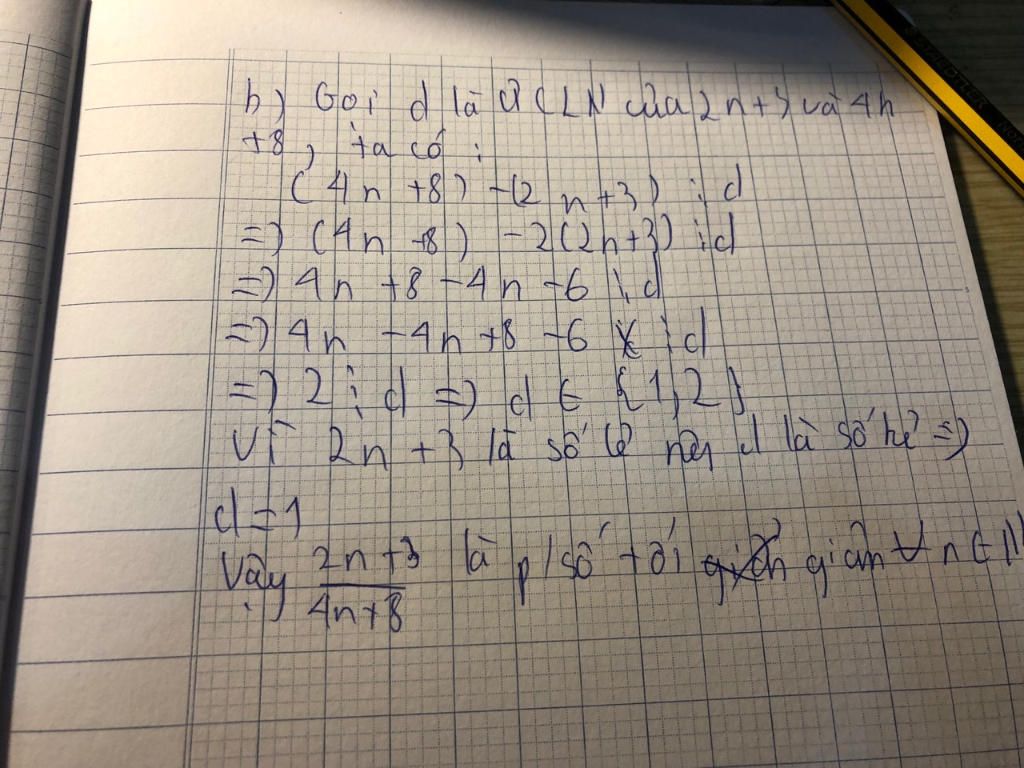 b) Gọi d là ƯCLN của 2n+3 và 4n
+8, ta có:
(4n+8)-(2n+3)⋮d
=> (4n+8)-2(2n+3)⋮d
=> 4n+8-4n-6⋮d
=> 4n-4n+8-6⋮d
=> 2⋮d => d∈{1,2}
Vì 2n+3 là số lẻ nên d là số lẻ =>
d=1
Vậy 2n+3/4n+8 là p/số tối giản ∀n∈N